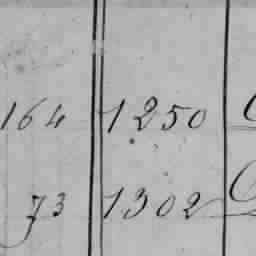 164 1250
73 1302